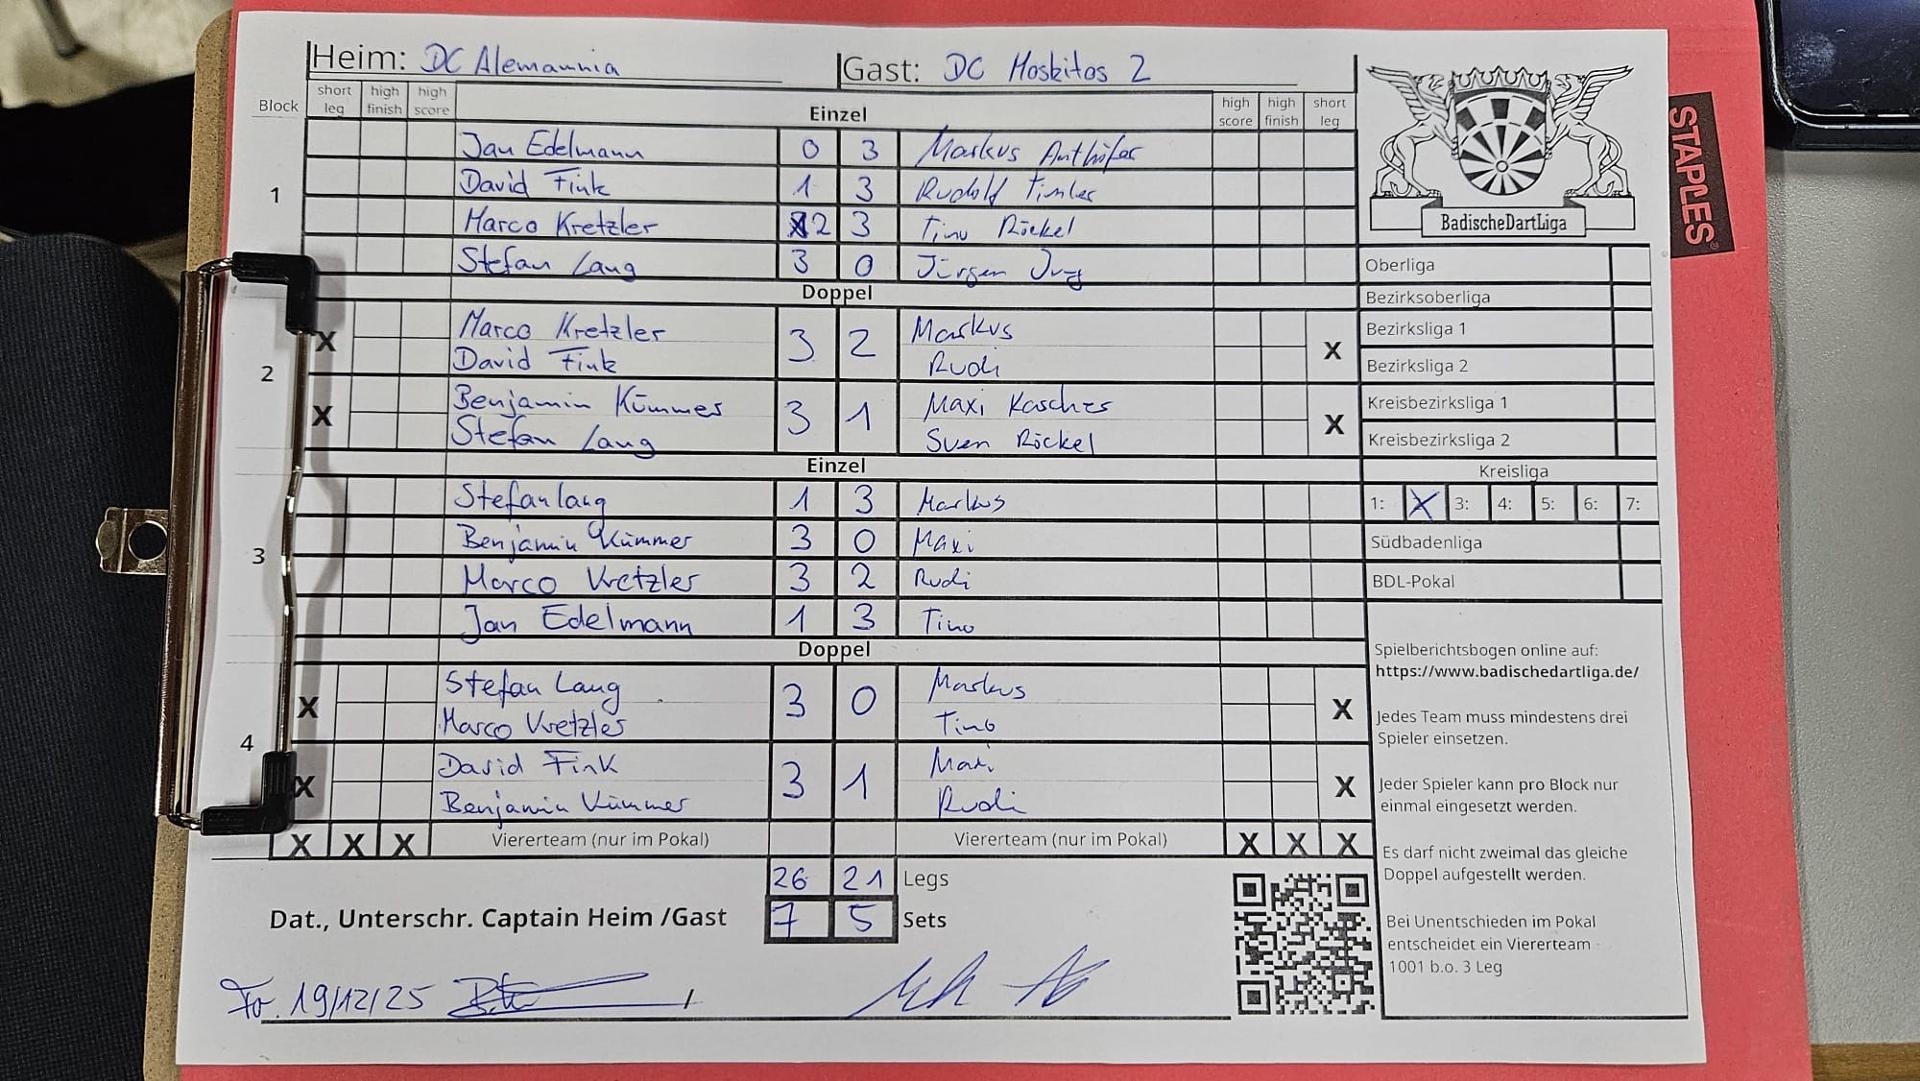 Heim: DC Alemannia Gast: DC Moskitos 2
Block short leg high finish high score Einzel high score high finish short leg
1
Jan Edelmann 0 3 Markus Anthöfer
David Fink 1 3 Rudolf
Marco Kretzler 2 3 Tino Röckel
Stefan Lang 3 0 Jürgen
Doppel
2
X Marco Kretzler 3 2 Markus X
David Fink Rudi
X Benjamin Kümmer 3 1 Maxi Kascher X
Stefan Lang Sven Röckel
Einzel
3
Stefan Lang 1 3 Markus
Benjamin Kümmer 3 0 Maxi
Marco Kretzler 3 2 Rudi
Jan Edelmann 1 3 Tino
Doppel
4
X Stefan Lang 3 0 Markus X
Marco Kretzler Tino
X David Fink 3 1 Maxi X
Benjamin Kümmer Rudi
X X X Viererteam (nur im Pokal) Viererteam (nur im Pokal) X X X
26 21 Legs
Dat., Unterschr. Captain Heim /Gast 7 5 Sets
Fr. 19/12/25
BadischeDartLiga
Oberliga
Bezirksoberliga
Bezirksliga 1
Bezirksliga 2
Kreisbezirksliga 1
Kreisbezirksliga 2
Kreisliga
1: X 3: 4: 5: 6: 7:
Südbadenliga
BDL-Pokal
Spielberichtsbogen online auf:
https://www.badischedartliga.de/
Jedes Team muss mindestens drei
Spieler einsetzen.
Jeder Spieler kann pro Block nur
einmal eingesetzt werden.
Es darf nicht zweimal das gleiche
Doppel aufgestellt werden.
Bei Unentschieden im Pokal
entscheidet ein Viererteam
1001 b.o. 3 Leg
STAPLES